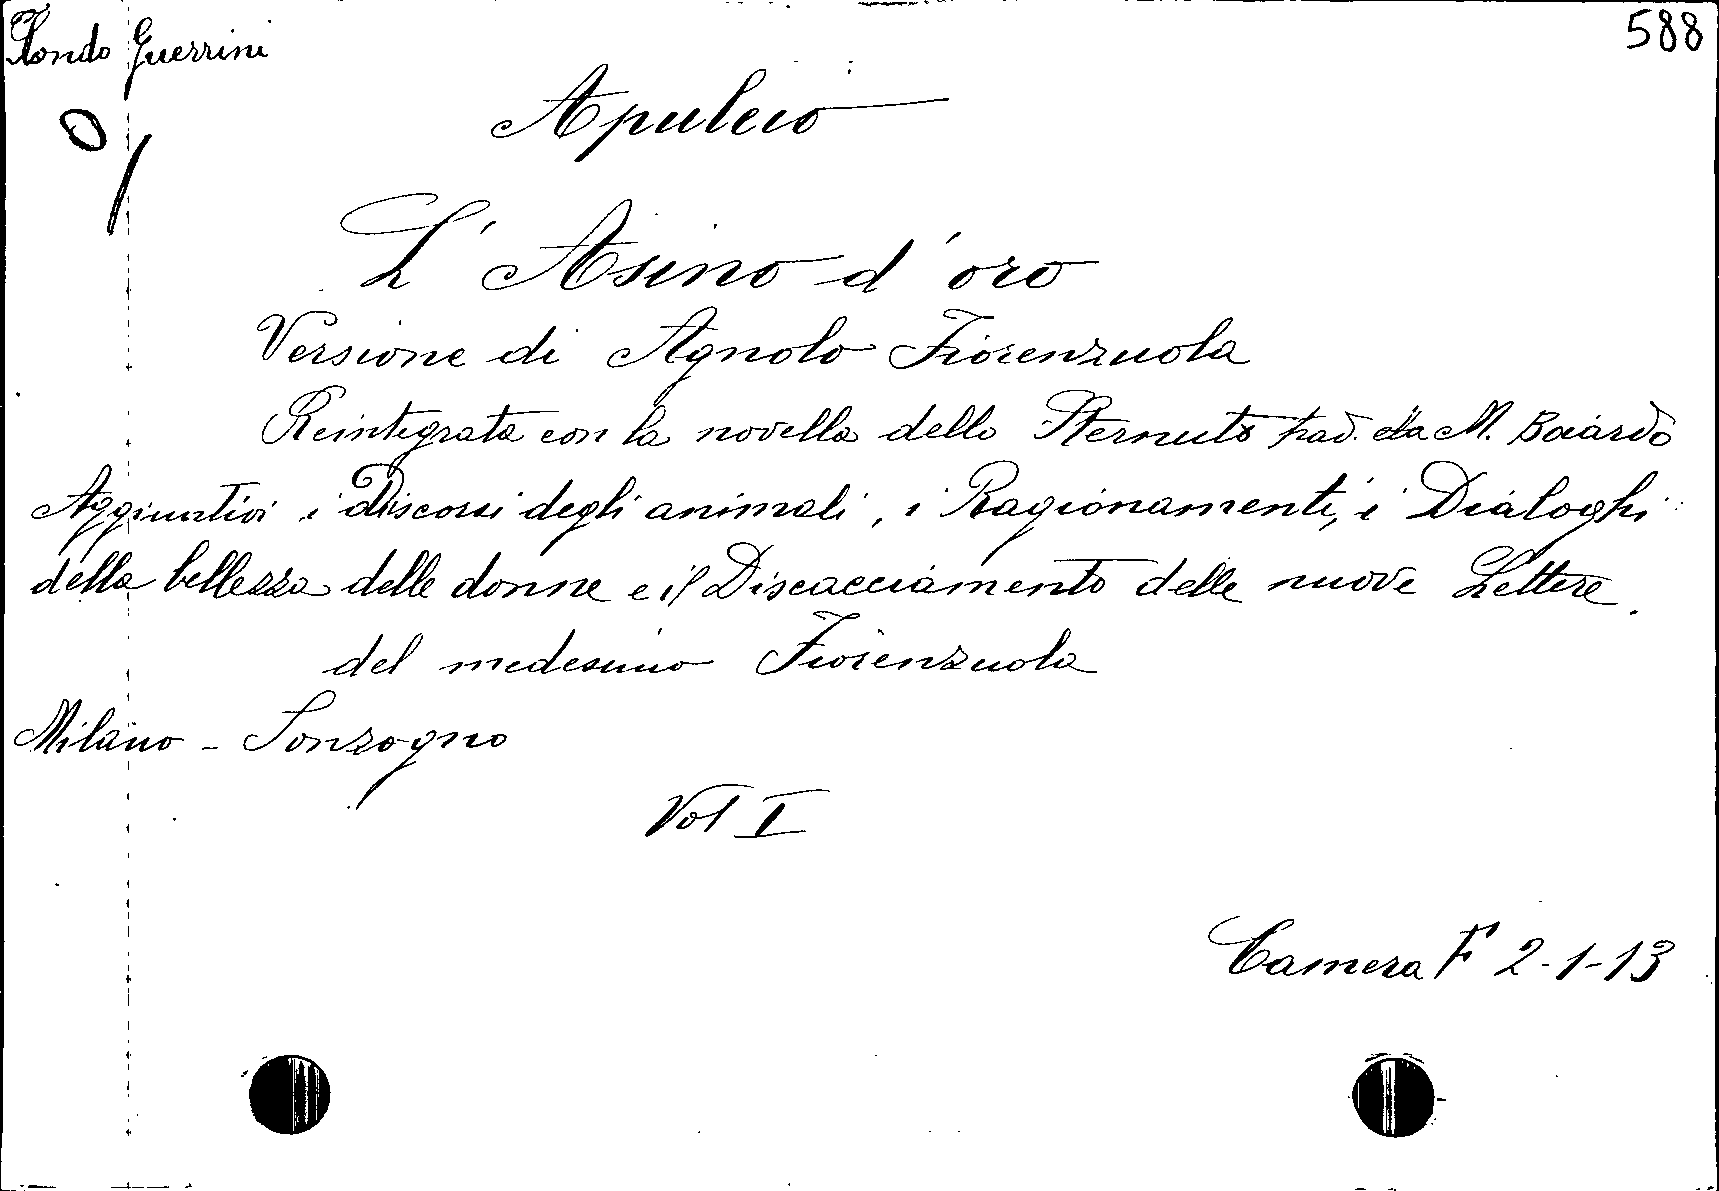 Fondo Guerrini
588
Apuleio
L'Asino d'oro
Versione di Agnolo Fiorenzuola
Reintegrata con la novella dello Sternuto trad. da M. Boiardo
Aggiuntivi i Discorsi degli animali, i Ragionamenti, i Dialoghi
della bellezza delle donne e il Discacciamento delle nuove Lettere.
del medesimo Fiorenzuola
Milano - Sonzogno
Vol I
Camera F 2-1-13